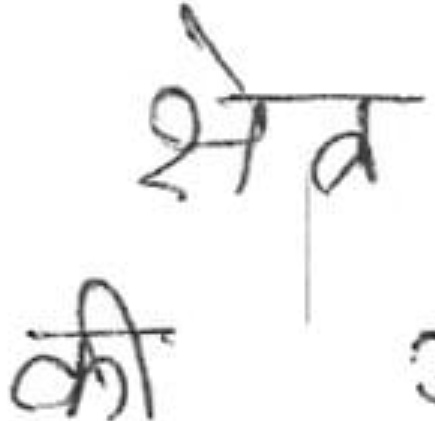 शेव
की